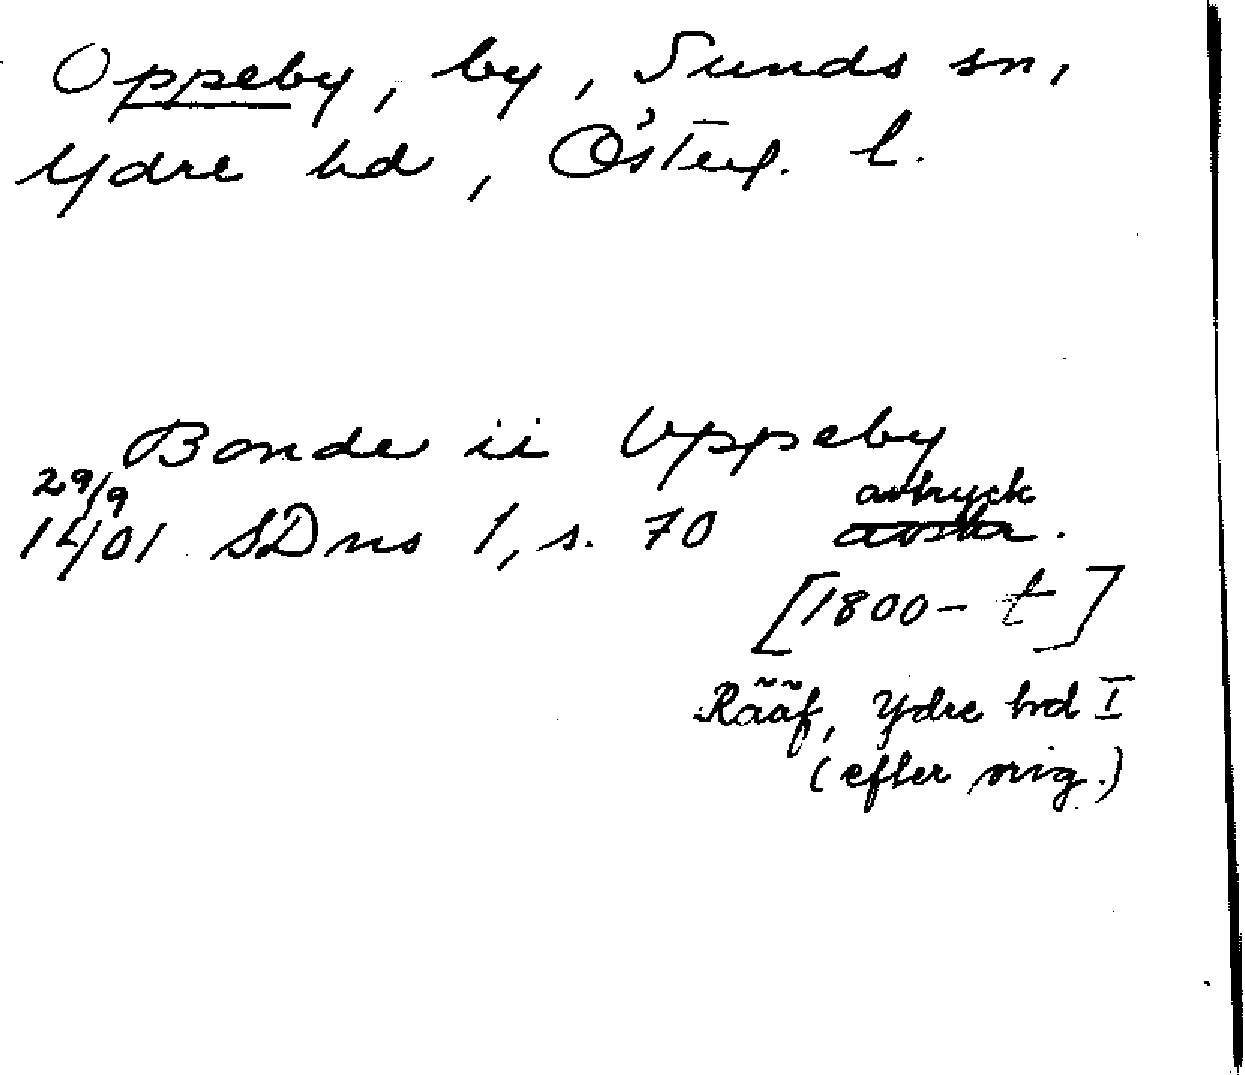 Oppeby, by, Sunds sn,
Ydre hd, Österg. l.
Bonde ii Vppeby
29/9 avtryck
1401 SDns 1, s. 70 avskr.
[1800-t]
Rääf, Ydre hrd I
(efter orig.)